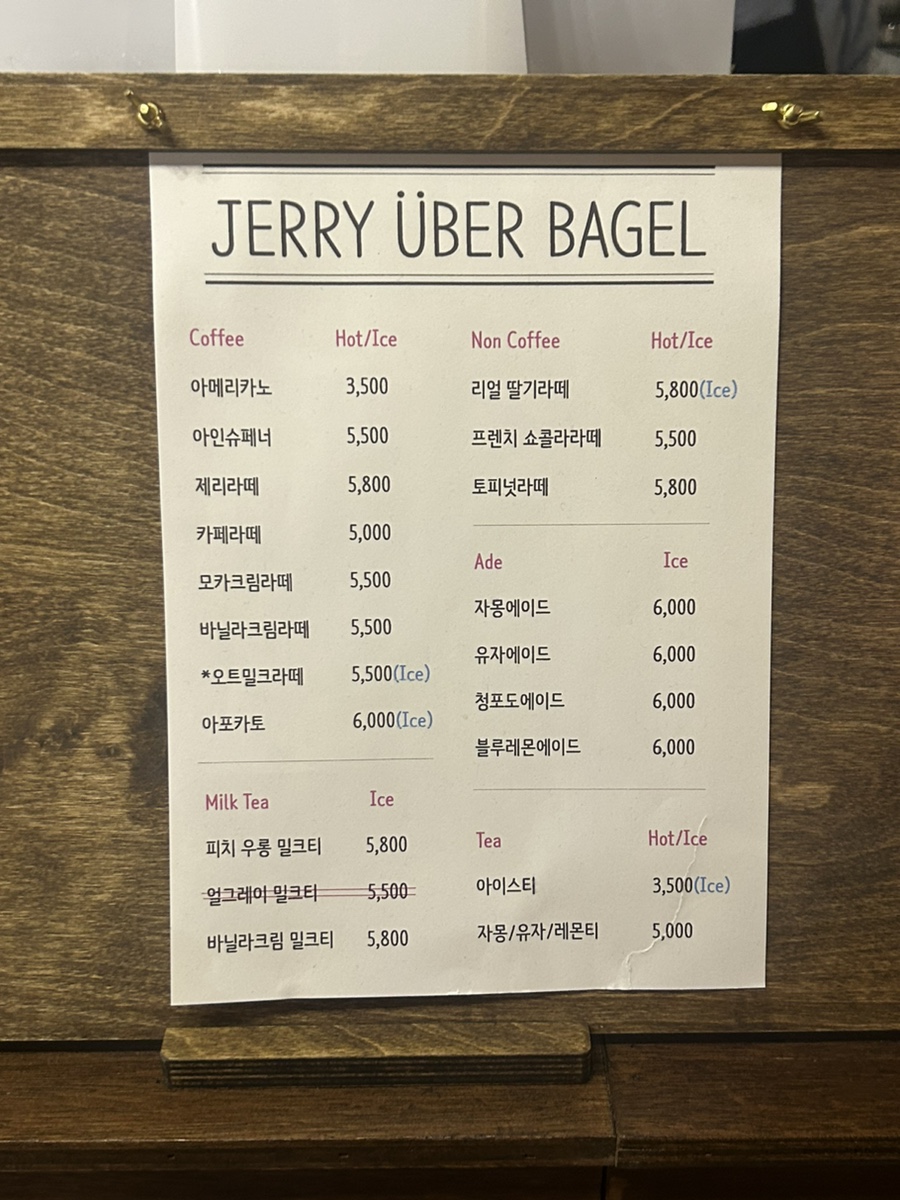 JERRY ÜBER BAGEL
Coffee Hot/Ice
아메리카노 3,500
아인슈페너 5,500
제리라떼 5,800
카페라떼 5,000
모카크림라떼 5,500
바닐라크림라떼 5,500
*오트밀크라떼 5,500(Ice)
아포카토 6,000(Ice)
Milk Tea Ice
피치 우롱 밀크티 5,800
얼그레이 밀크티 5,500
바닐라크림 밀크티 5,800
Non Coffee Hot/Ice
리얼 딸기라떼 5,800(Ice)
프렌치 쇼콜라라떼 5,500
토피넛라떼 5,800
Ade Ice
자몽에이드 6,000
유자에이드 6,000
청포도에이드 6,000
블루레몬에이드 6,000
Tea Hot/Ice
아이스티 3,500(Ice)
자몽/유자/레몬티 5,000